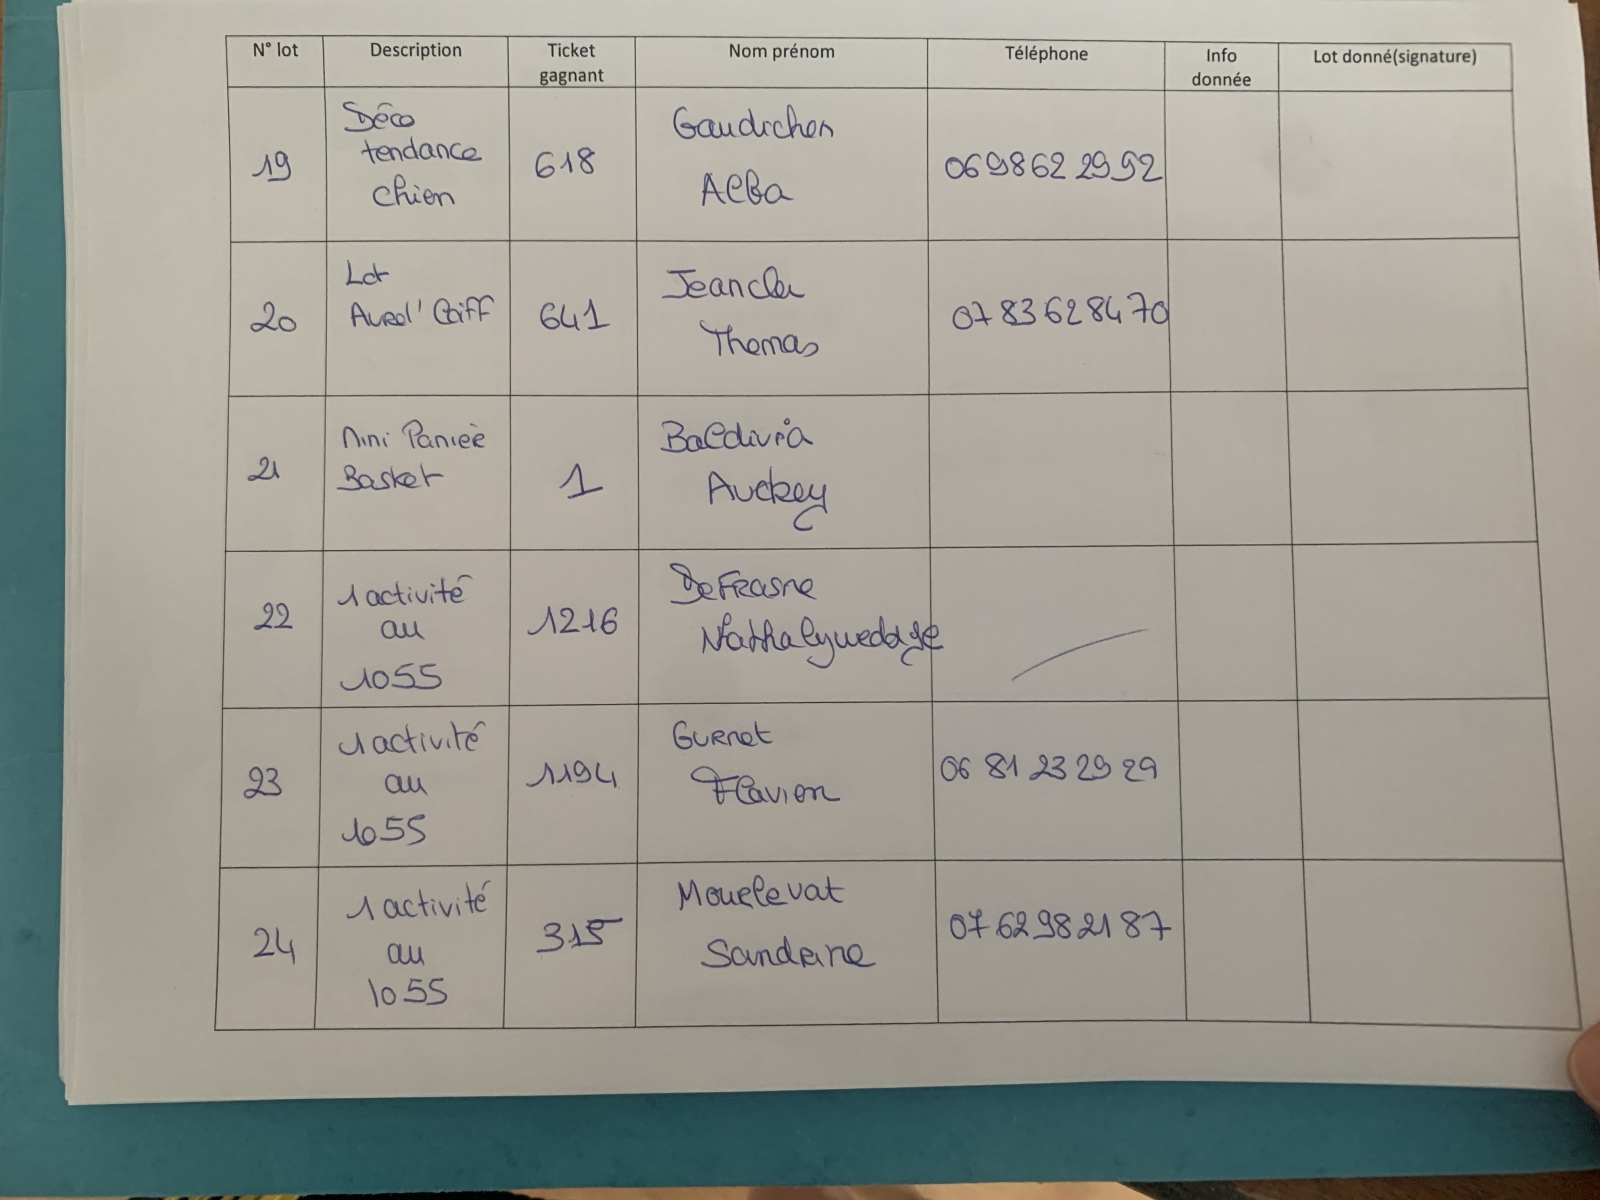 N° lot Description Ticket gagnant Nom prénom Téléphone Info donnée Lot donné(signature)
19 Déco tendance chien 618 Gaudichon Alba 06 98 62 29 92
20 Lot Aurel' Coiff 641 Jeancler Thomas 07 83 62 84 70
21 Mini Panier Basket 1 Baldivia Audrey
22 1 activité au 1055 1216 Defrasne
23 1 activité au 1055 1194 Gurnot Flavien 06 81 23 29 29
24 1 activité au 1055 315 Mourlevat Sandrine 07 62 98 21 87